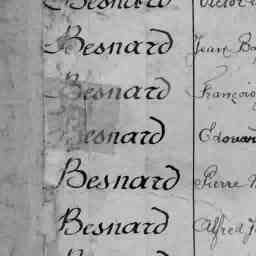 Besnard Victor
Besnard Jean Ba
Besnard François
Besnard Edouard
Besnard Pierre
Besnard Alfred J